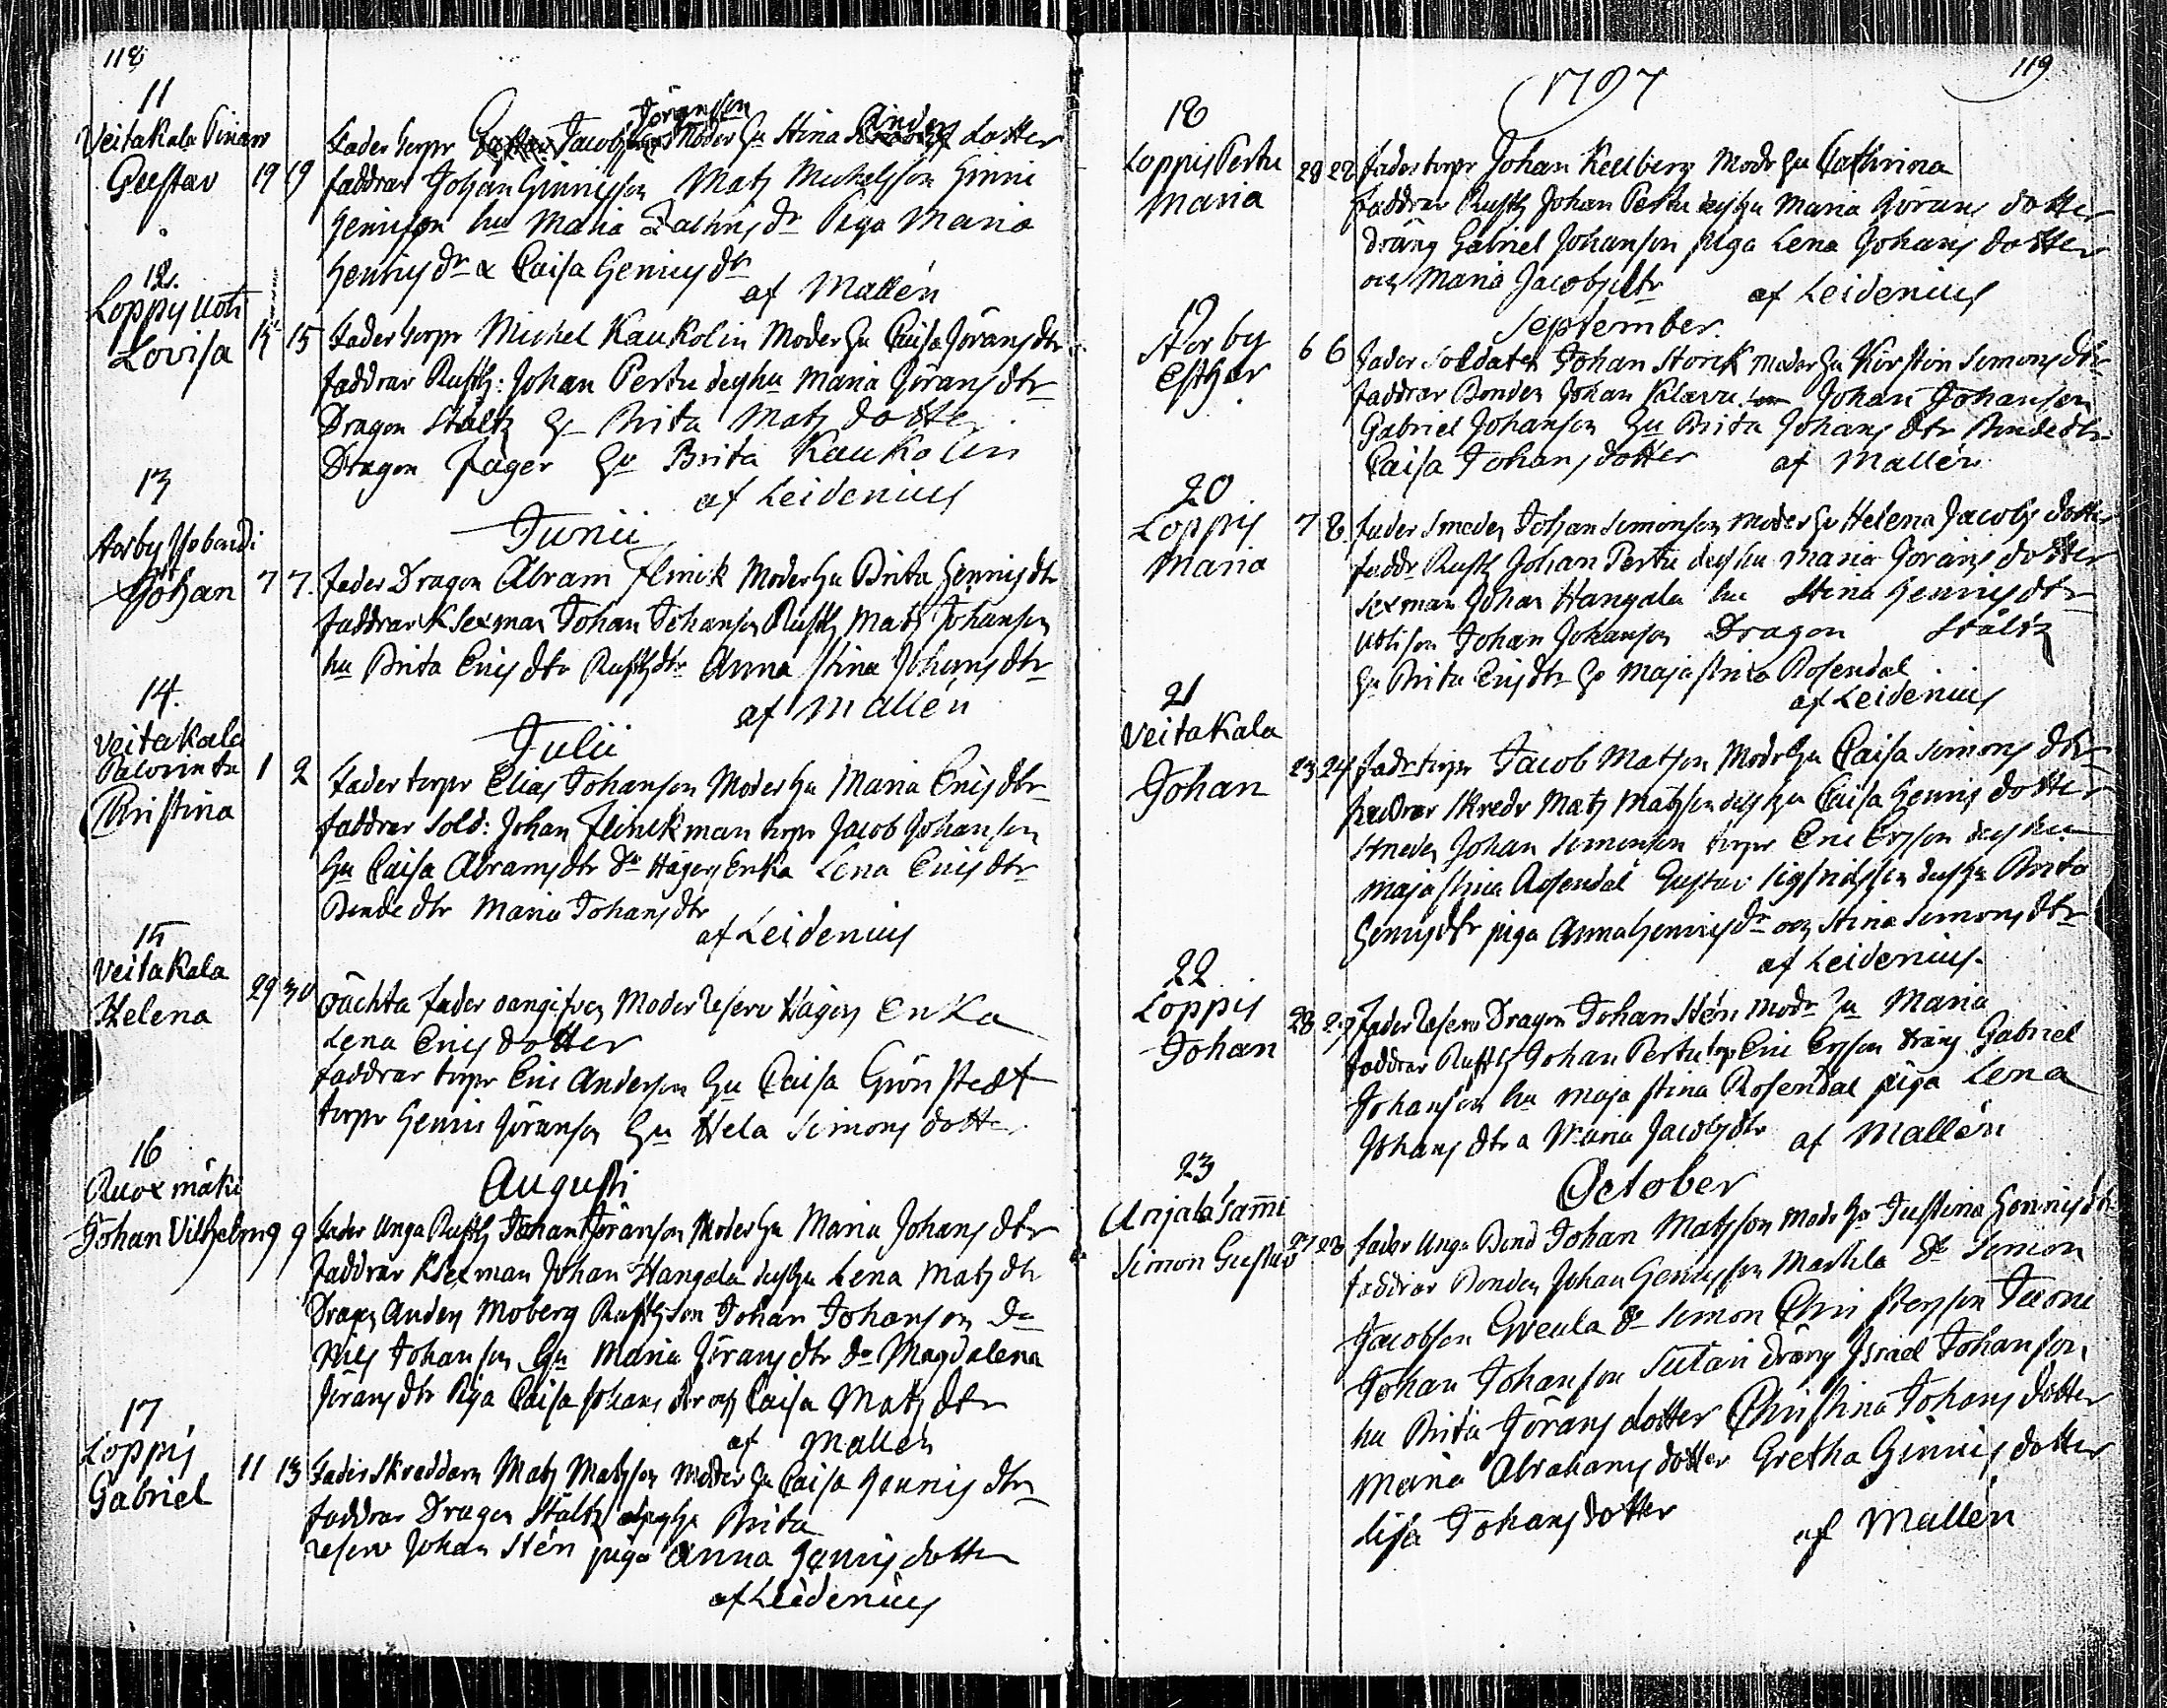 118
11
Veitakala Pinar
Gustav 19 19
Fader torpr Jacob Jöranson Moder Hu Stina Anders dotter
faddrar Johan Hinrisson Matz Michelsson Hinri
Henrisson hu Maria Zachrisdr Piga Maria
Henrisdr & Caisa Henrisdr
af Mallén
12.
Loppis Uoti
Lovisa 15 15
Fader torpr Michel Kaukolin Moder Hu Caisa Jöransdtr
faddrar Rusth: Johan Pertu des hu Maria Jöransdtr
Dragon Stältz Hu Brita Matz dotter
Dragon Jäger Hu Brita Kaukolin
af Leidenius
Junii
13
Aarby Yöbondi
Johan 7 7.
Fader Dragon Abram Flinck Moder Hu Brita Henrisdtr
faddrar K Sexman Johan Johanson Rusth Matz Johanson
hu Brita Ericsdtr Rusthdtr Anna Stina Johansdtr
af Mallén
Julii
14.
Veitakala
Palovintu
Christina 1 2
Fader torpr Elias Johanson Moder Hu Maria Ericsdtr
faddrar Sold: Johan Flinckman torpr Jacob Johanson
Hu Caisa Abramsdtr Dr Hägers Enka Lena Ericsdtr
Bondedtr Maria Johansdtr
af Leidenius
15
Veitakala
Helena 29 30
oächta fader oangifven Moder Reserv Hägers Enka
Lena Erics dotter
faddrar torpr Eric Anderson Hu Caisa Grönstedt
torpr Henric Jöranson Hu Hela Simons dotter
Augusti
16
Ruoxmäki
Johan Vilhelm 9 9
Fader Unga Rusth Johan Jöranson Moder Hu Maria Johansdtr
faddrar K Sexman Johan Hangala des Hu Lena Matzdtr
Dragon Anders Moberg Rusth: son Johan Johanson do
Nils Johanson Hu Maria Jöransdtr do Magdalena
Jöransdtr Piga Caisa Johansdtr och Caisa Matzdtr
af Mallén
17
Loppis
Gabriel 11 13
Fader Skreddarn Matz Matsson Moder Hu Caisa Henrisdtr
faddrar Dragon Stältz des Hu Brita
reserv Johan Stén piga Anna Henrisdotter
af Leidenius
1797
119
18
Loppis Pertu
Maria 28 28
Fader torpr Johan Kellberg Modr Hu Cathrina
faddrar Rusth Johan Pertu des Hu Maria Jörans dotter
dräng Gabriel Johanson piga Lena Johans dotter
och Maria Jacobsdtr af Leidenius
September
19
Storby
Esther 6 6
Fader Soldaten Johan Storck Moder Hu Kirstin Simonsdtr
faddrar Bonden Johan Klavu Johan Johanson
Gabriel Johanson Hu Brita Johansdtr Bondedtr
Caisa Johansdotter af Mallén
20
Loppis
Maria 7 8
Fader Smeden Johan Simonson Moder Hu Helena Jacobs dotter
faddr Rusth Johan Pertu des hu Maria Görans dotter
Sexman Johan Hangala hu Stina Henrisdtr
Johan Johanson Dragon Stältz
Hu Brita Ericsdtr Hu Maja Stina Rosendal
af Leidenius
21
Veitakala
Johan 23 24
Fadr torpr Jacob Matson Modr Hu Caisa Simons dtr
faddrar Skredr Matz Matsson des Hu Caisa Henris dotter
Smeden Johan Simonson torpr Eric Ersson des hu
Maja Stina Rosendal Gustav Sigfridsson des Hu Brita
Henrisdtr piga Anna Henrisdr och Stina Simonsdtr
af Leidenius.
22
Loppis
Johan 28 29
Fader Reserv Dragon Johan Stén Modr Hu Maria
faddrar Rusth Johan Pertu torp Eric Ersson dräng Gabriel
Johanson hu Maja Stina Rosendal piga Lena
Johansdtr a Maria Jacobsdtr af Mallén
October
23
Anjala Sami
Simon Gustav 27 28
Fader Unga Bond Johan Matsson Modr Hu Justina Henrisdtr
faddrar Bonden Johan Henrisson Markla Do Simon
Jacobson Gveula Do Simon Christersson Tuomi
Johan Johanson Sutari dräng Israel Johanson,
hu Brita Jörans dotter Christina Johans dotter
Maria Abrahams dotter Gretha Henris dotter
Lisa Johans dotter af Mallén